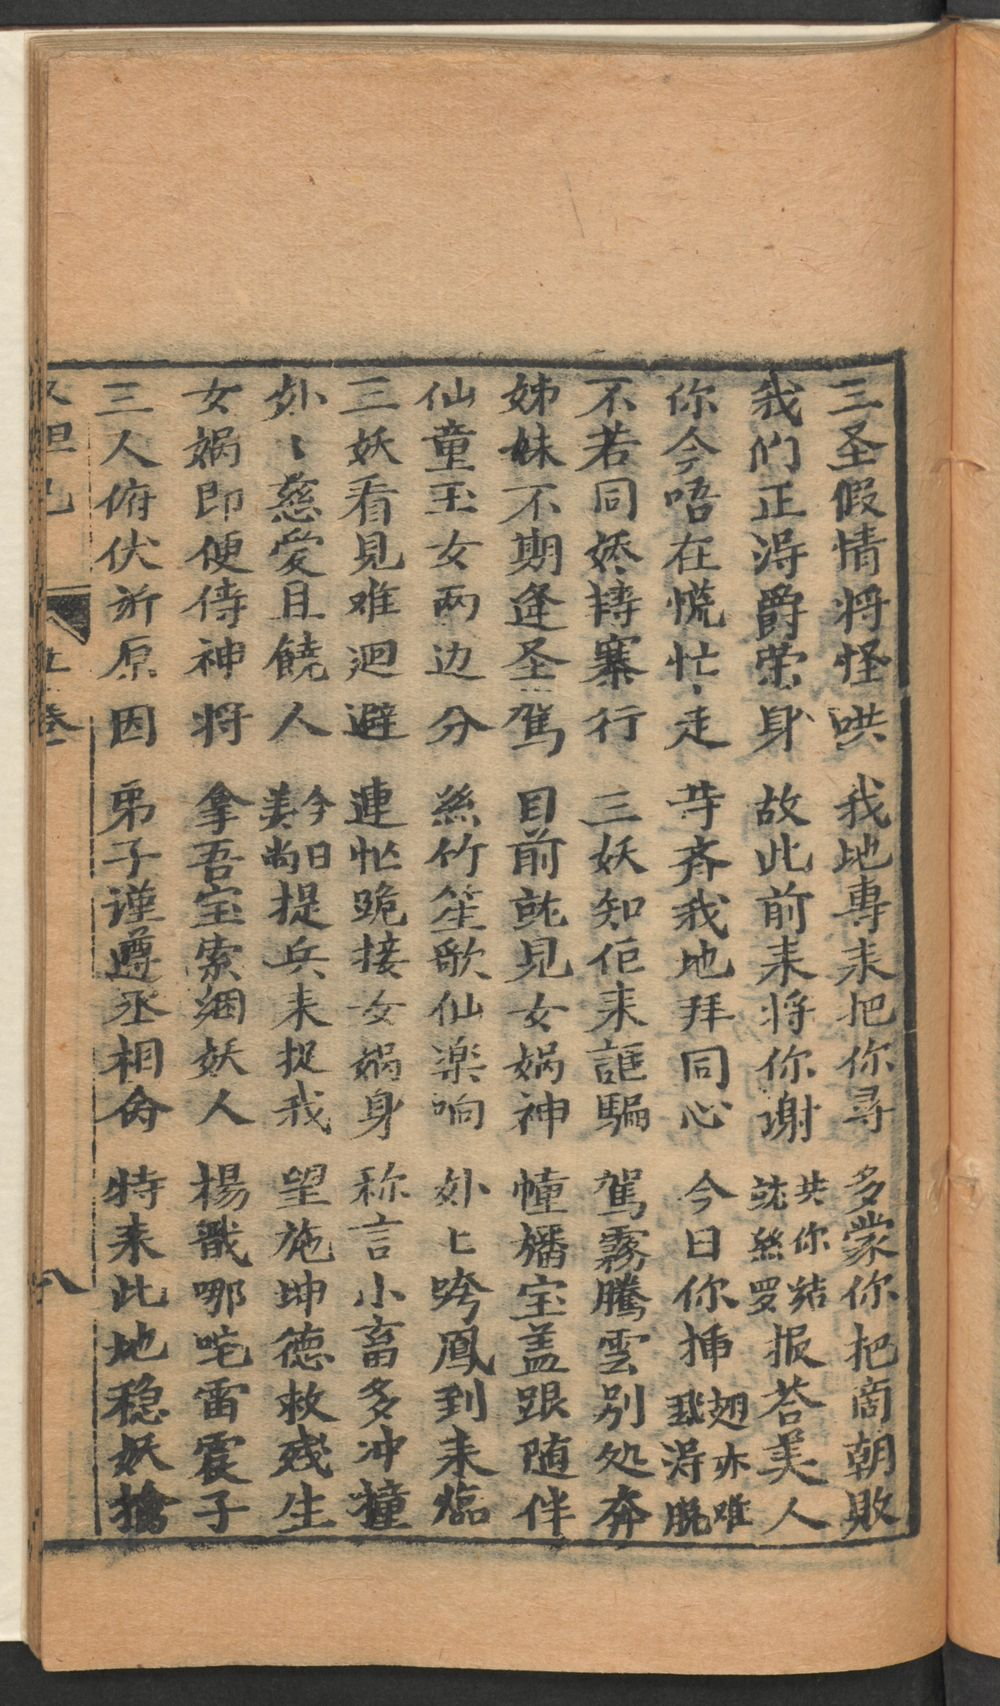 三圣假情将怪哄　我地專来把你尋　多蒙你把商朝敗
我们正淂爵荣身　故此前来将你谢　共你結就絲罗报荅美人
你今唔在慌忙走　等齐我地拜同心　今日你揷翅亦难飛淂脱
不若同娇轉寨行　三妖知佢来誆騙　駕霧騰雲别处奔
姊妹不期逢圣駕　目前就見女娲神　幢旛宝盖跟随伴
仙童玉女两边分　絲竹笙歌仙楽响　处匕跨鳳到来臨
三妖看見难迴避　連忙跪接女娲身　称言小畜多冲撞
处〻慈爱且饒人　今日姜尚提兵来捉我　望施坤德救残生
女娲即便侍神将　拿吾宝索綑妖人　楊戩哪咤雷震子
三人俯伏訴原因　弟子谨遵丞相命　特来此地稳妖擒
妲己　五卷　八